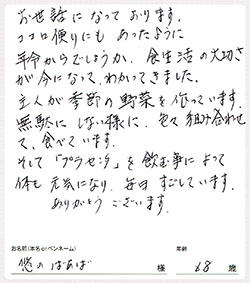 お世話になっております。
ココロ便りにもあったように
年令からでしょうか、食生活の大切さ
が今になって、わかってきました。
主人が季節の野菜を作っています。
無駄にしない様に、色々組み合わせ
て、食べています。
そして「プラセンタ」を飲む事によって
体も元気になり、毎日すごしています。
ありがとうございます。
お名前(本名 or ペンネーム)
年齢
悠のばあば 様 68 歳